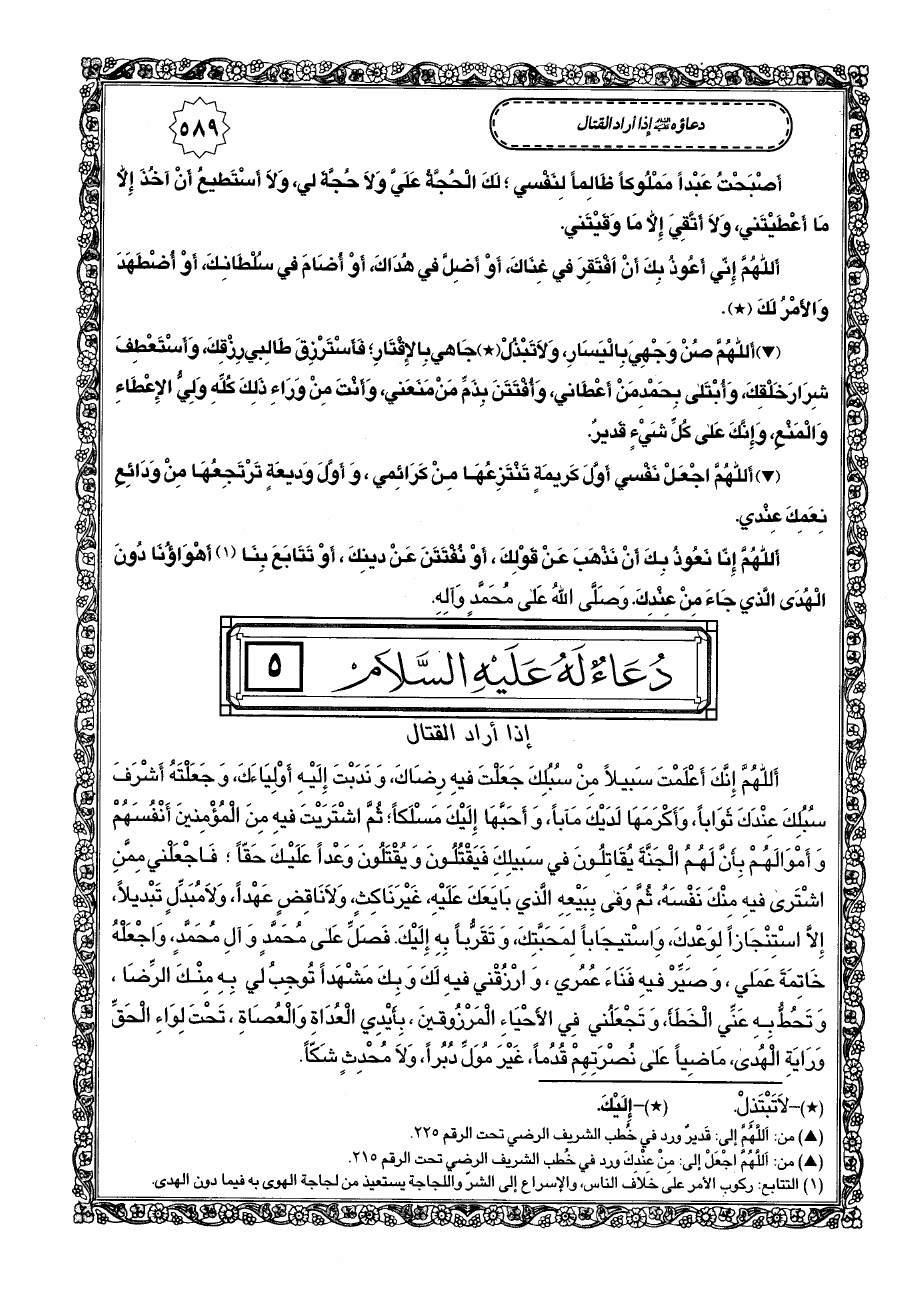 دعاؤه عليه السلام إذا أراد القتال
٥٨٩
أَصْبَحْتُ عَبْداً مَمْلُوكاً ظَالِماً لِنَفْسي ؛ لَكَ الْحُجَّةُ عَلَيَّ وَلاَ حُجَّةَ لي، وَلاَ أَسْتَطيعُ أَنْ آخُذَ إِلاَّ
مَا أَعْطَيْتَني، وَلاَ أَتَّقِيَ إِلاَّ مَا وَقَيْتَني.
أَللّٰهُمَّ إِنّي أَعُوذُ بِكَ أَنْ أَفْتَقِرَ في غِنَاكَ، أَوْ أَضِلَّ في هُدَاكَ، أَوْ أُضَامَ في سُلْطَانِكَ، أَوْ أُضْطَهَدَ
وَالأَمْرُ لَكَ (★).
(▼) أَللّٰهُمَّ صُنْ وَجْهِيَ بِالْيَسَارِ، وَلاَ تَبْذُلْ (★) جَاهِيَ بِالإِقْتَارِ؛ فَأَسْتَرْزِقَ طَالِبي رِزْقِكَ، وَأَسْتَعْطِفَ
شِرَارَ خَلْقِكَ، وَأُبْتَلىٰ بِحَمْدِ مَنْ أَعْطَاني، وَأُفْتَتَنَ بِذَمِّ مَنْ مَنَعَني، وَأَنْتَ مِنْ وَرَاءِ ذَلِكَ كُلِّهِ وَلِيُّ الإِعْطَاءِ
وَالْمَنْعِ، وَإِنَّكَ عَلىٰ كُلِّ شَيْءٍ قَديرٌ.
(▼) أَللّٰهُمَّ اجْعَلْ نَفْسي أَوَّلَ كَريمَةٍ تَنْتَزِعُهَا مِنْ كَرَائِمي، وَ أَوَّلَ وَديعَةٍ تَرْتَجِعُهَا مِنْ وَدَائِعِ
نِعَمِكَ عِنْدي.
أَللّٰهُمَّ إِنَّا نَعُوذُ بِكَ أَنْ نَذْهَبَ عَنْ قَوْلِكَ، أَوْ نُفْتَتَنَ عَنْ دينِكَ، أَوْ تَتَابَعَ بِنَا (١) أَهْوَاؤُنَا دُونَ
الْهُدَى الَّذي جَاءَ مِنْ عِنْدِكَ. وَصَلَّى اللّٰهُ عَلىٰ مُحَمَّدٍ وَآلِهِ.
دُعَاءٌ لَهُ عَلَيْهِ السَّلاَمُ ٥
إذا أراد القتال
أَللّٰهُمَّ إِنَّكَ أَعْلَمْتَ سَبيلاً مِنْ سُبُلِكَ جَعَلْتَ فيهِ رِضَاكَ، وَ نَدَبْتَ إِلَيْهِ أَوْلِيَاءَكَ، وَ جَعَلْتَهُ أَشْرَفَ
سُبُلِكَ عِنْدَكَ ثَوَاباً، وَأَكْرَمَهَا لَدَيْكَ مَآباً، وَ أَحَبَّهَا إِلَيْكَ مَسْلَكاً؛ ثُمَّ اشْتَرَيْتَ فيهِ مِنَ الْمُؤْمِنينَ أَنْفُسَهُمْ
وَ أَمْوَالَهُمْ بِأَنَّ لَهُمُ الْجَنَّةَ يُقَاتِلُونَ في سَبيلِكَ فَيَقْتُلُونَ وَ يُقْتَلُونَ وَعْداً عَلَيْكَ حَقّاً ؛ فَاجْعَلْني مِمَّنِ
اشْتَرىٰ فيهِ مِنْكَ نَفْسَهُ، ثُمَّ وَفىٰ بِبَيْعِهِ الَّذي بَايَعَكَ عَلَيْهِ، غَيْرَ نَاكِثٍ، وَلاَ نَاقِضٍ عَهْداً، وَلاَ مُبَدِّلٍ تَبْديلاً،
إِلاَّ اسْتِنْجَازاً لِوَعْدِكَ، وَاسْتيجَاباً لِمَحَبَّتِكَ، وَ تَقَرُّباً بِهِ إِلَيْكَ. فَصَلِّ عَلىٰ مُحَمَّدٍ وَ آلِ مُحَمَّدٍ، وَاجْعَلْهُ
خَاتِمَةَ عَمَلي، وَ صَيِّرْ فيهِ فَنَاءَ عُمُري، وَ ارْزُقْني فيهِ لَكَ وَ بِكَ مَشْهَداً تُوجِبُ لي بِهِ مِنْكَ الرِّضَا،
وَ تَحُطُّ بِهِ عَنِّي الْخَطَأَ، وَ تَجْعَلُني فِي الأَحْيَاءِ الْمَرْزُوقينَ، بِأَيْدِي الْعُدَاةِ وَالْعُصَاةِ، تَحْتَ لِوَاءِ الْحَقِّ
وَرَايَةِ الْهُدىٰ، مَاضِياً عَلىٰ نُصْرَتِهِمْ قُدُماً، غَيْرَ مُوَلٍّ دُبُراً، وَلاَ مُحْدِثٍ شَكّاً.
(★)-لاَ تَبْتَذِلْ. (★)-إِلَيْكَ.
(▲) من: أَللّٰهُمَّ إلى: قَديرٌ ورد في خُطب الشريف الرضي تحت الرقم ٢٢٥.
(▲) من: أَللّٰهُمَّ اجْعَلْ إلى: مِنْ عِنْدِكَ ورد في خُطب الشريف الرضي تحت الرقم ٢١٥.
(١) التتابع: ركوب الأمر على خلاف الناس، والإسراع إلى الشرّ واللجاجة يستعيذ من لجاجة الهوى به فيما دون الهدى.